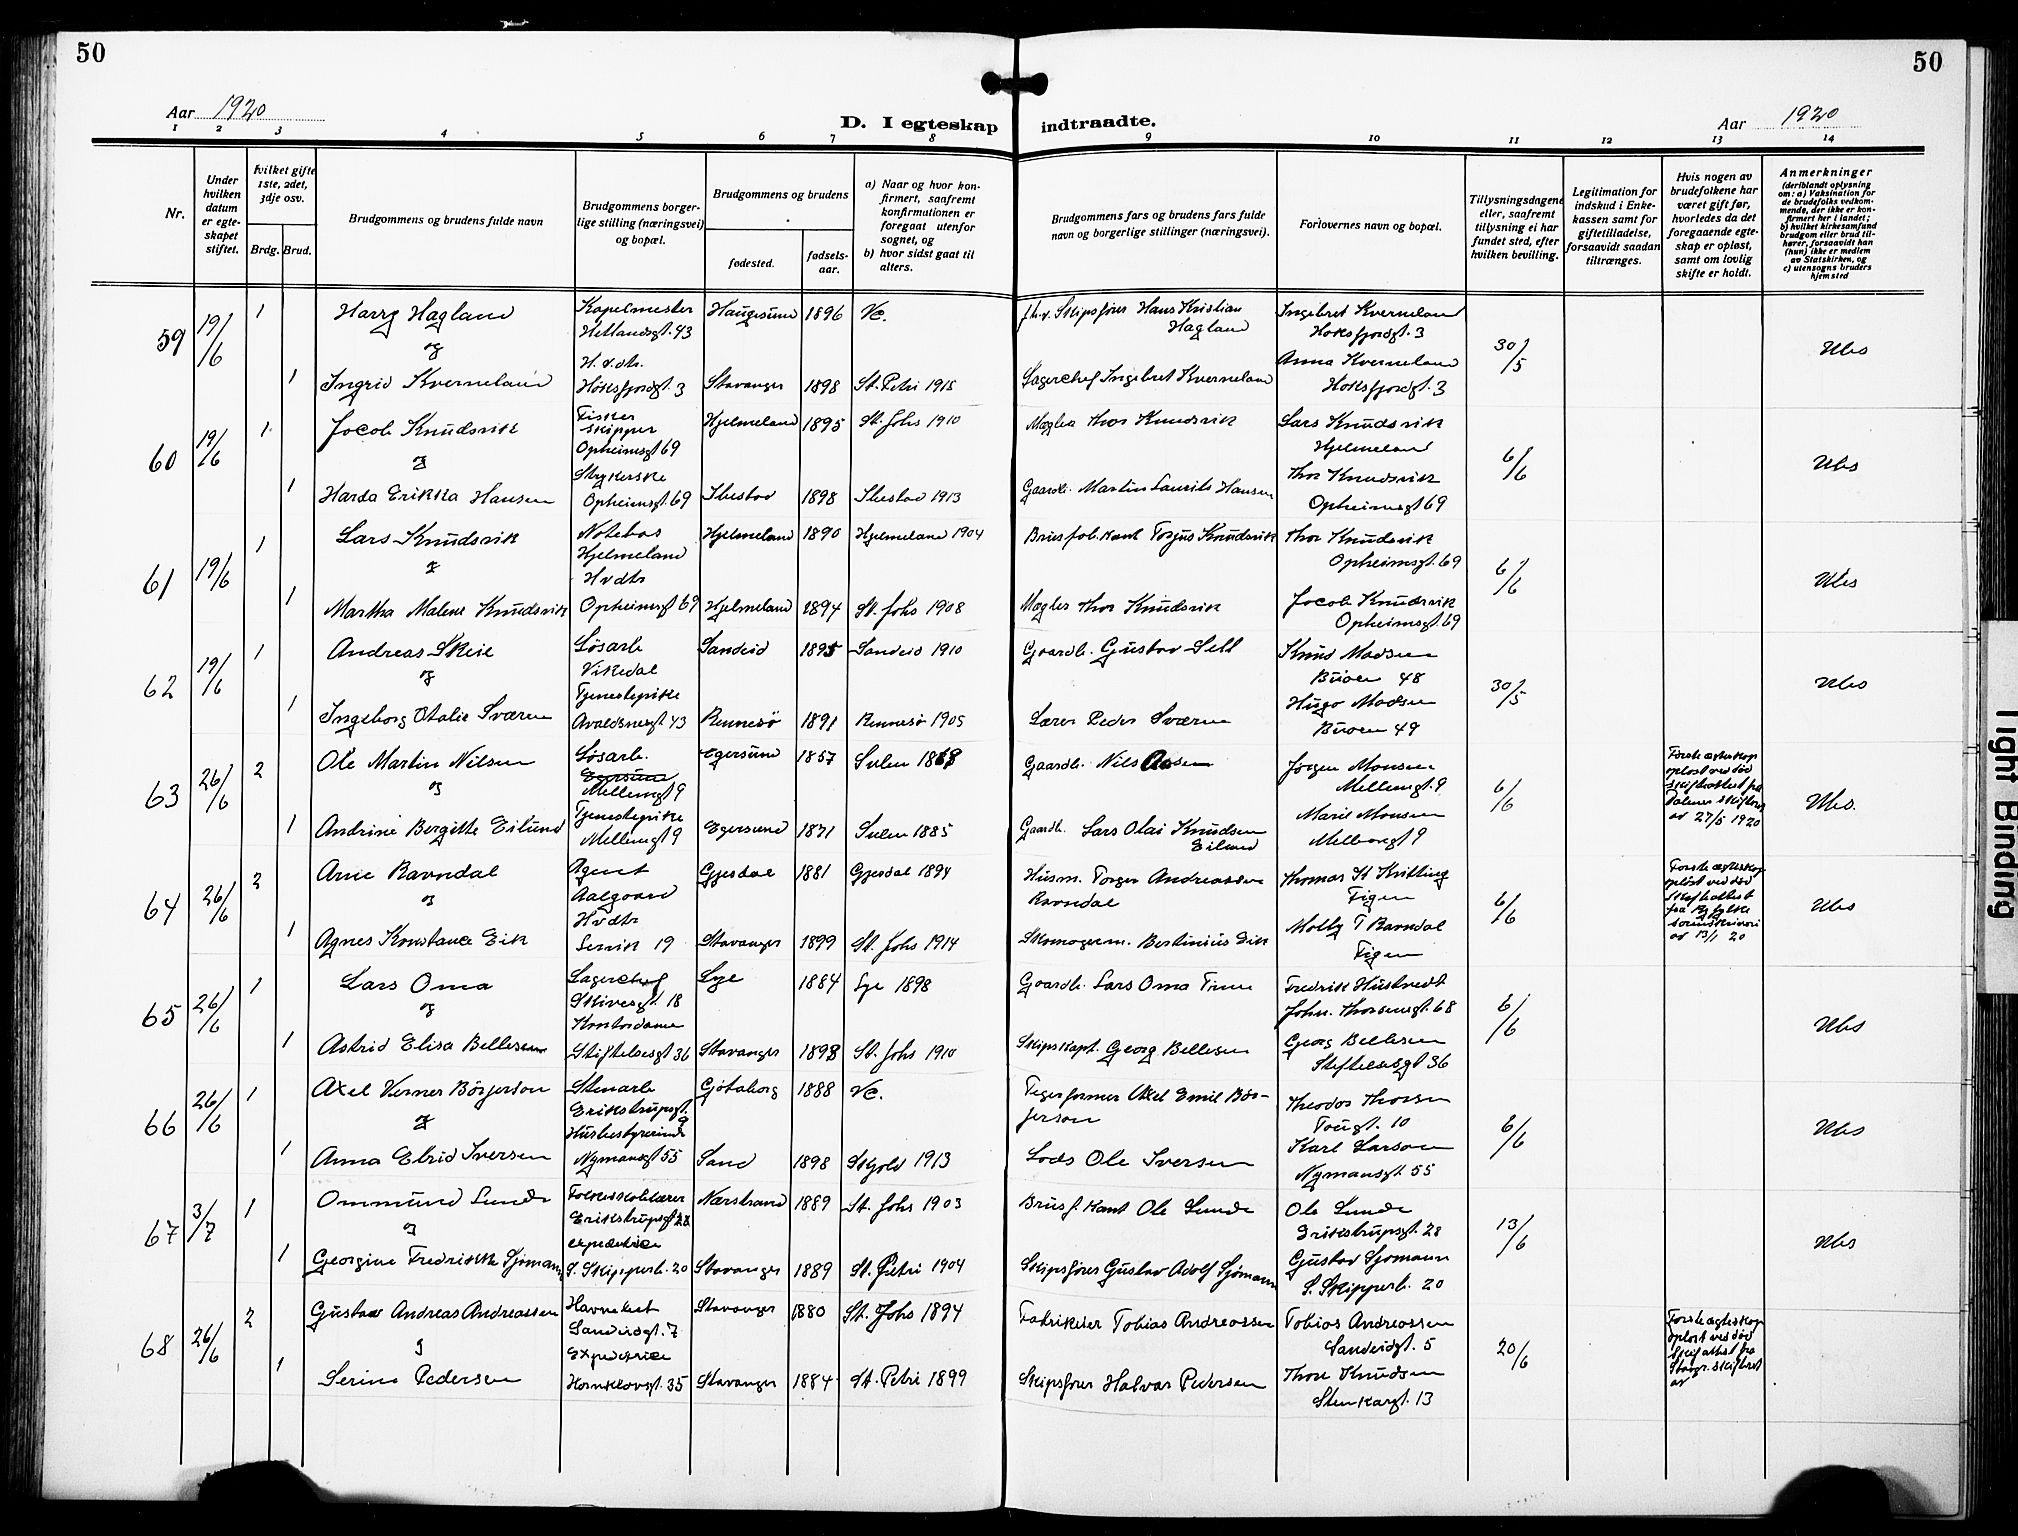 50
50
Aar 1920
D. I egteskap indtraadte.
Aar 1920
1 2 3 4 5 6 7 8 9 10 11 12 13 14
Nr.
Under hvilken datum er egteskapet stiftet.
Hvilket gifte 1ste, 2det, 3dje osv.
Brdg. Brud.
Brudgommens og brudens fulde navn
Brudgommens borgerlige stilling (næringsvei) og bopæl.
Brudgommens og brudens
fødested.
fødselsaar.
a) Naar og hvor konfirmert, saafremt konfirmationen er foregaat utenfor sognet, og
b) hvor sidst gaat til alters.
Brudgommens fars og brudens fars fulde navn og borgerlige stillinger (næringsvei).
Forlovernes navn og bopæl.
Tillysningsdagene eller, saafremt tillysning ei har fundet sted, efter hvilken bevilling.
Legitimation for indskud i Enkekassen samt for giftetilladelse, forsaavidt saadan tiltrænges.
Hvis nogen av brudefolkene har været gift før, hvorledes da det foregaaende egteskap er opløst, samt om lovlig skifte er holdt.
Anmerkninger
(deriblandt oplysning om: a) Vaksination for de brudefolks vedkommende, der ikke er konfirmert her i landet;
b) hvilket kirkesamfund brudgom eller brud tilhører, forsaavidt han (hun) ikke er medlem av Statskirken, og
c) utensogns bruders hjemsted
59 19/6 1 Harry Hagland Kapelmester Hetlandsgt. 43 Haugesund 1896 Vc. fhv. Skipsfører Hans Kristian Hagland Ingebret Kverneland Høksfjordgt. 3 30/5 Ubs
og
1 Ingrid Kverneland H. v. dtr. Høksfjordgt. 3 Stavanger 1898 St. Petri 1915 Lagerchef Ingebret Kverneland Anna Kverneland Høksfjordgt. 3
60 19/6 1 Jacob Knudsvik Fisker skipper Opheimsgt 69 Hjelmeland 1895 St. Johs 1910 Mægler Thor Knudsvik Lars Knudsvik Hjelmeland 6/6 Ubs
og
1 Harda Erikka Hansen Strykerske Opheimsgt. 69 Ibestad 1898 Ibestad 1913 Gaardb. Martin Laurits Hansen Thor Knudsvik Opheimsgt 69
61 19/6 1 Lars Knudsvik Notebas Hjelmeland Hjelmeland 1890 Hjelmeland 1904 Brusfab.kant Torjus Knudsvik Thor Knudsvik Opheimsgt. 69 6/6 Ubs
og
1 Martha Malene Knudsvik Hvdtr Opheimsgt 69 Hjelmeland 1894 St. Johs 1908 Mægler Thor Knudsvik Jacob Knudsvik Opheimsgt. 69
62 19/6 1 Andreas Skeie Løsarb Vikedal Sandeid 1895 Sandeid 1910 Gaardb. Gustav Knud Madsen Buøen 48 30/5 Ubs
og
1 Ingeborg Otalie Sværen Tjenestepike Avaldsnesgt. 43 Rennesø 1891 Rennesø 1905 Lærer Peder Sværen Hugo Madsen Buøen 49
63 26/6 2 Ole Martin Nilsen Løsarb. Egersund Mellemgt 9 Egersund 1857 Gaardb. Nils Jørgen Monsen Mellemgt. 9 6/6 Første ægteskap opløst ved død skifteattest fra Dalenes skifteret av 27/5 1920 Ubs.
og
1 Andrine Bergitte Eilund Tjenestepike Mellemgt 9 Egersund 1871 1885 Gaardb. Lars Olai Knudsen Eilund Marie Monsen Mellemgt 9
64 26/6 2 Arne Ravndal Agent Aalgaard Gjesdal 1881 Gjesdal 1894 Husm. Torger Andreassen Ravndal Thomas Figen 6/6 Første ægteskap opløst ved død Skifteattest fra Ryfylke sorenskriveri av 13/1 20 Ubs
og
1 Agnes Konstance Eik Hvdtr 19 Stavanger 1899 St. Johs 1914 Skomagerm. Bertinius Eik Molly T Ravndal Figen
65 26/6 1 Lars Oma Lagerchef Skivesgt. 18 Lye 1884 Lye 1898 Gaardb. Lars Oma Time Fredrik Hustvedt John. Thorsensgt. 68 6/6 Ubs
og
1 Astrid Elisa Bellesen Kontordame Stiftelsesgt 36 Stavanger 1898 St. Johs 1910 Skipskapt. Georg Bellesen Georg Bellesen Stiftelsesgt 36
66 26/6 1 Axel Verner Börjerson Stenarb Erikstrupsgt. 9 Göteborg 1888 Vc. Axel Emil Börjerson Theodor Thorsen Tougt. 10 6/6 Ubs
og
1 Anna Elrid Iversen Husbestyrerinde Nymansgt 55 Sand 1898 Skjold 1913 Lods Ole Iversen Karl Larson Nymansgt. 55
67 3/7 1 Ommund Lunde Folkeskolelærer Erikstrupsgt 28 Nærstrand 1889 St. Johs 1903 Brusf.kant Ole Lunde Ole Lunde Erikstrupsgt. 28 13/6 Ubs
og
1 Georgine Fredrikke Sjømann expeditrice S. Skipperb. 20 Stavanger 1889 St. Petri 1904 Skipsfører Gustav Adolf Sjømann Gustav Sjømann S. Skipperb. 20
68 26/6 2 Gustav Andreas Andreassen Sandeidgt. 7 Stavanger 1880 St. Johs 1894 Fabrikeier Tobias Andreassen Tobias Andreassen Sandeidgt. 5 20/6 Første ægteskap opløst ved død Skifteattest fra Stavgr. skifteret av
og
1 Serine Pedersen Expeditrice Hornklovsgt. 35 Stavanger 1884 St. Petri 1899 Skipsfører Halvar Pedersen Thore Knudsen Stenkargt. 13
Tight Binding